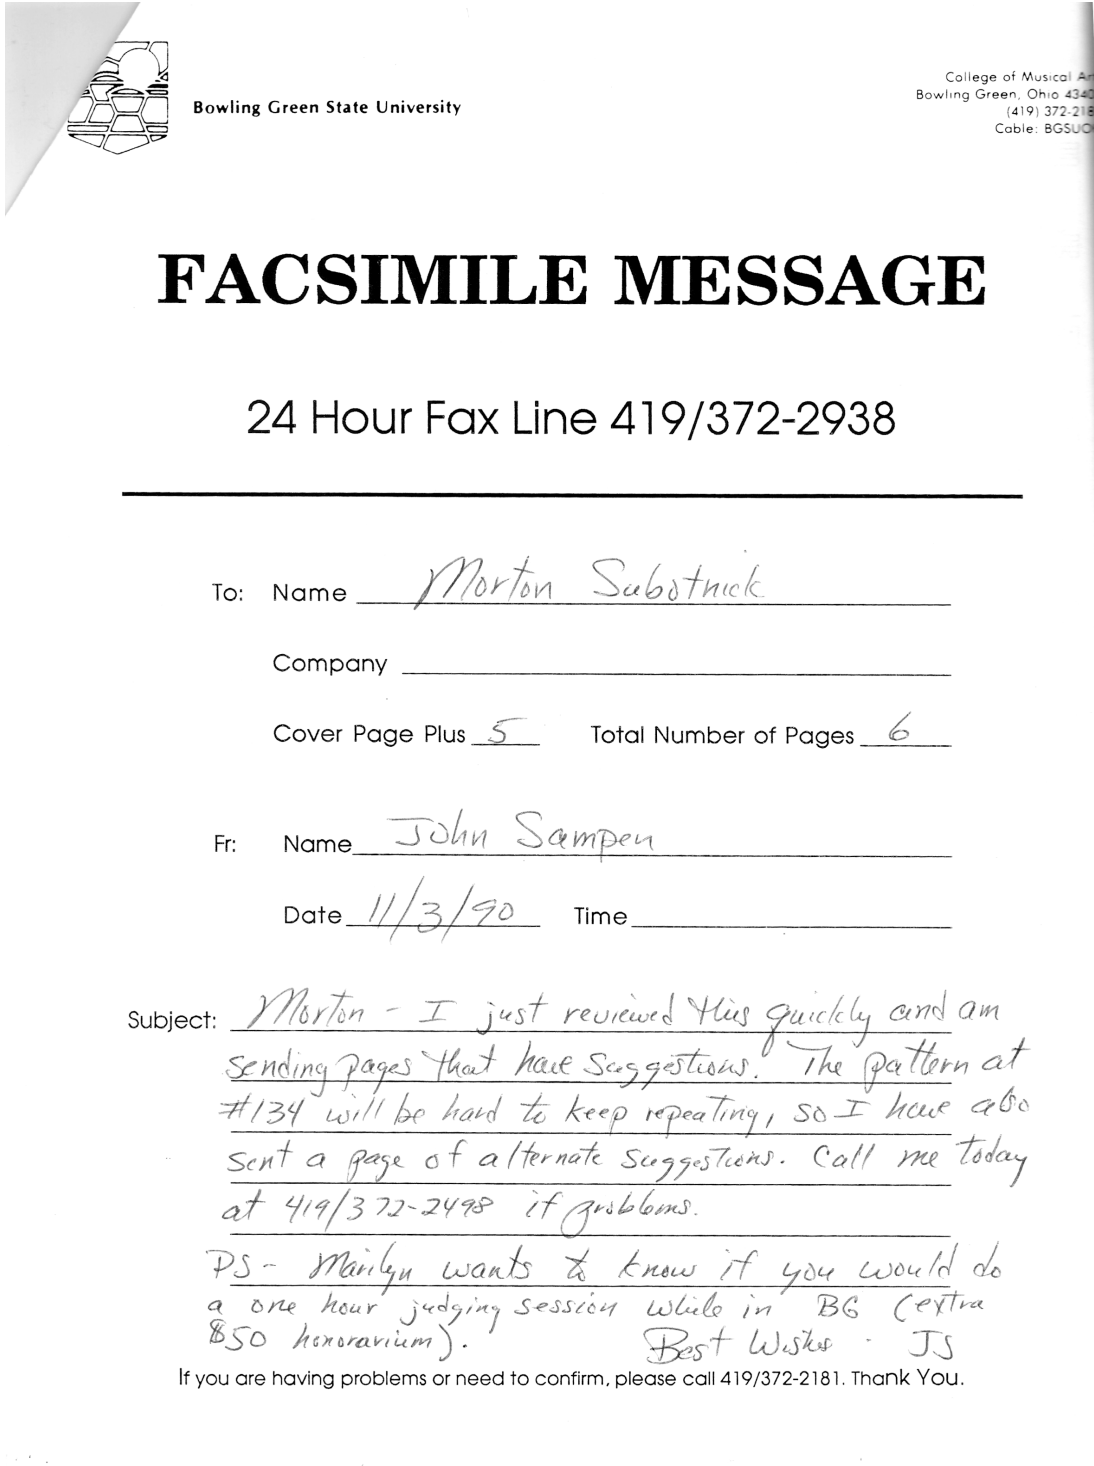 Bowling Green State University
College of Musical Ar
Bowling Green, Ohio 4340
(419) 372-218
Cable: BGSUO
FACSIMILE MESSAGE
24 Hour Fax Line 419/372-2938
To: Name Morton Subotnick
Company
Cover Page Plus 5 Total Number of Pages 6
Fr: Name John Sampen
Date 11/3/90 Time
Subject: Morton - I just reviewed this quickly and am
sending pages that have suggestions. The pattern at
#134 will be hard to keep repeating, so I have also
sent a page of alternate suggestions. Call me today
at 419/372-2498 if problems.
PS - Marilyn wants to know if you would do
a one hour judging session while in BG (extra
$50 honorarium).
Best Wishes - JS
If you are having problems or need to confirm, please call 419/372-2181. Thank You.